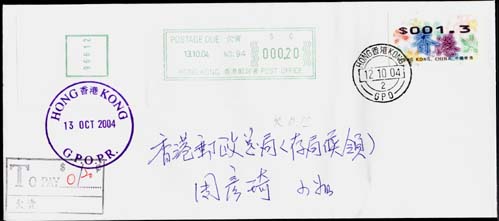 POSTAGE DUE 欠資
13.10.04 NO. 94 $ C 000,20
HONG KONG 香港郵政署 POST OFFICE
$001.3
香港
HONG KONG, CHINA 中國香港
HONG 香港 KONG
12.10.04
2
GPO
HONG 香港 KONG
13 OCT 2004
G.P.O.P.R.
香港郵政總局(存局候領)
周彥琦 小姐
To PAY $
欠資